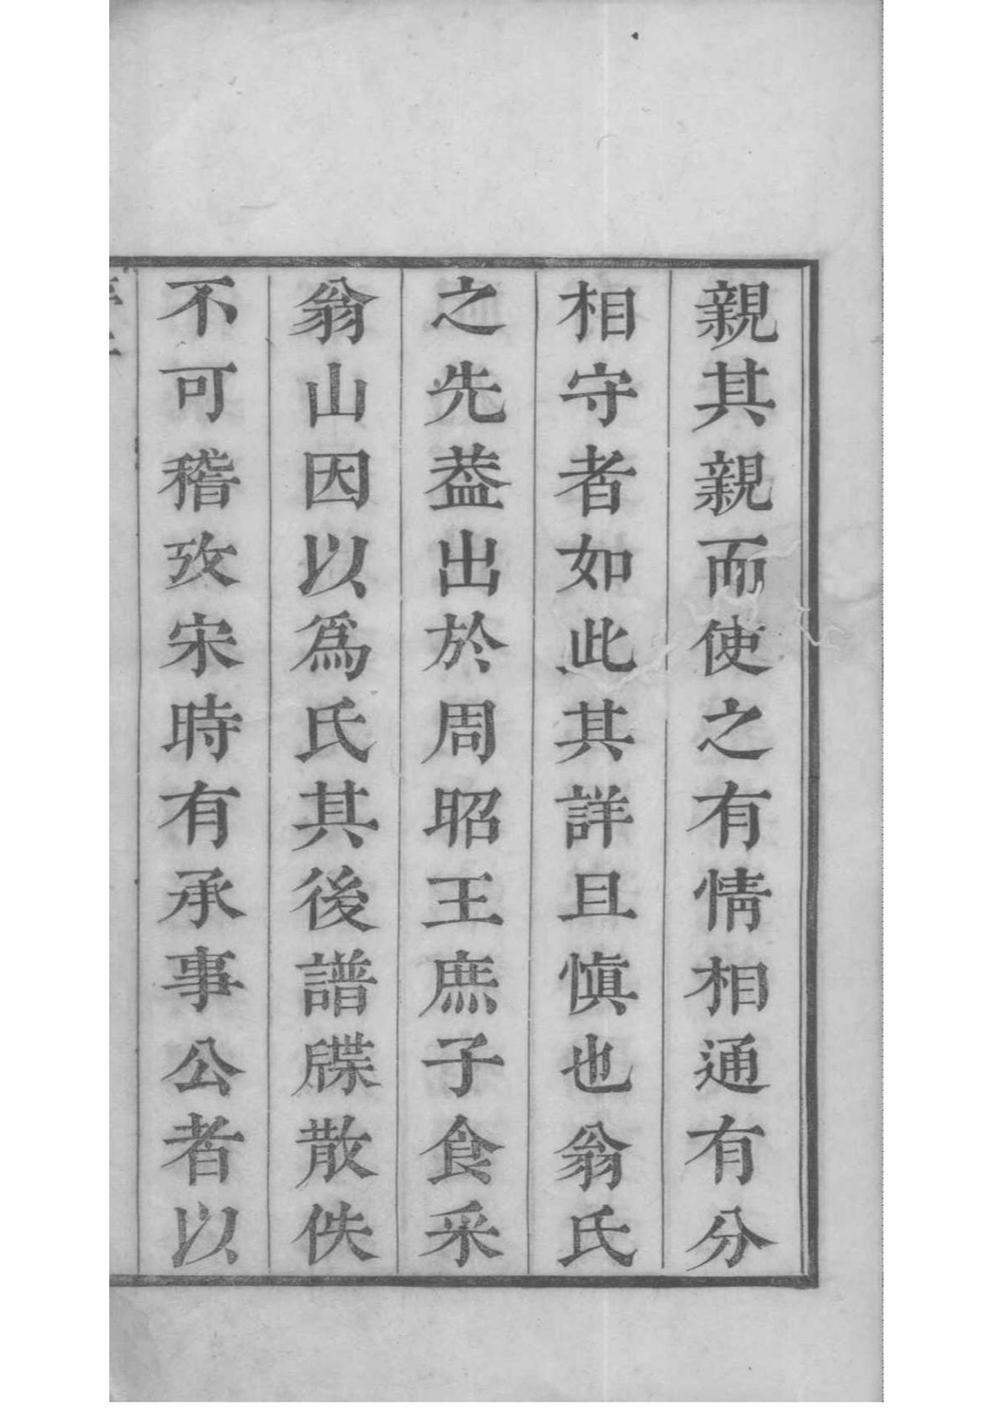 親其親而使之有情相通有分
相守者如此其詳且慎也翁氏
之先葢出於周昭王庶子食采
翁山因以爲氏其後譜牒散佚
不可稽攷宋時有承事公者以